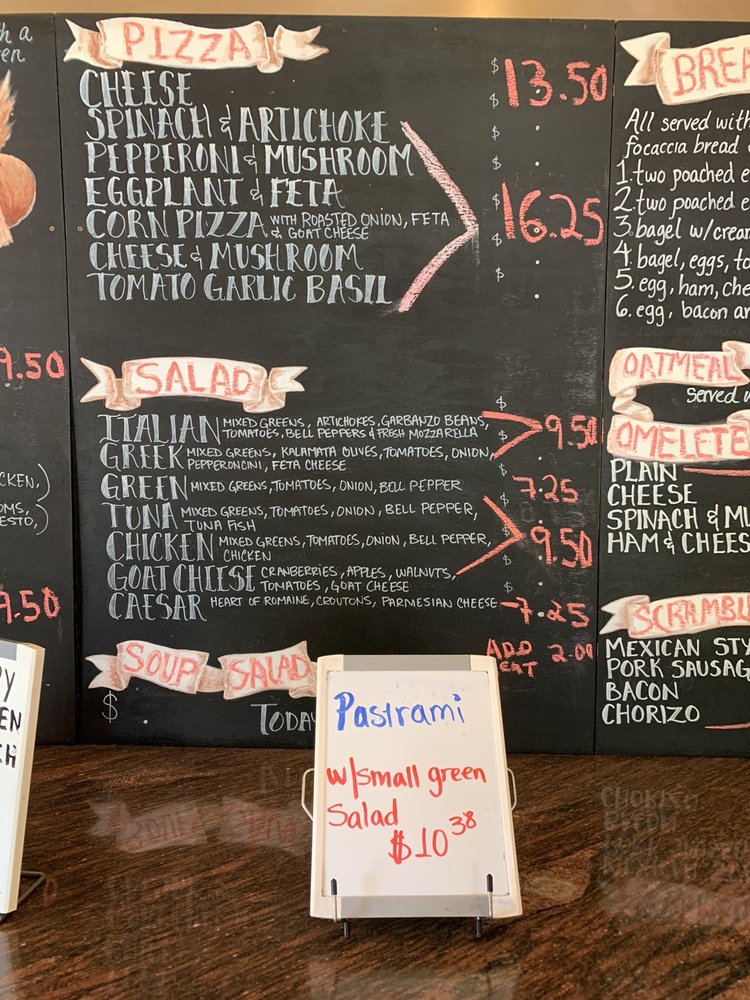 PIZZA
CHEESE
$13.50
SPINACH & ARTICHOKE
PEPPERONI & MUSHROOM
EGGPLANT & FETA
$16.25
CORN PIZZA WITH ROASTED ONION, FETA
& GOAT CHEESE
CHEESE & MUSHROOM
TOMATO GARLIC BASIL
9.50
SALAD
ITALIAN MIXED GREENS, ARTICHOKES, GARBANZO BEANS,
TOMATOES, BELL PEPPERS & FRESH MOZZARELLA
9.50
GREEK MIXED GREENS, KALAMATA OLIVES, TOMATOES, ONION,
PEPPERONCINI, FETA CHEESE
GREEN MIXED GREENS, TOMATOES, ONION, BELL PEPPER
7.25
TUNA MIXED GREENS, TOMATOES, ONION, BELL PEPPER,
TUNA FISH
9.50
CHICKEN MIXED GREENS, TOMATOES, ONION, BELL PEPPER,
CHICKEN
GOAT CHEESE CRANBERRIES, APPLES, WALNUTS,
TOMATOES, GOAT CHEESE
CAESAR HEART OF ROMAINE, CROUTONS, PARMESIAN CHEESE
7.25
9.50
SOUP SALAD
ADD
2.00
$
TODA
Pastrami
w/small green
Salad
$10 38
BREA
All served with
focaccia bread
1. two poached e
2. two poached e
3. bagel w/crea
4. bagel, eggs, to
5. egg, ham, che
6. egg, bacon a
OATMEAL
served w
OMELETE
PLAIN
CHEESE
SPINACH & MU
HAM & CHEES
SCRAMBL
MEXICAN STY
PORK SAUSAG
BACON
CHORIZO